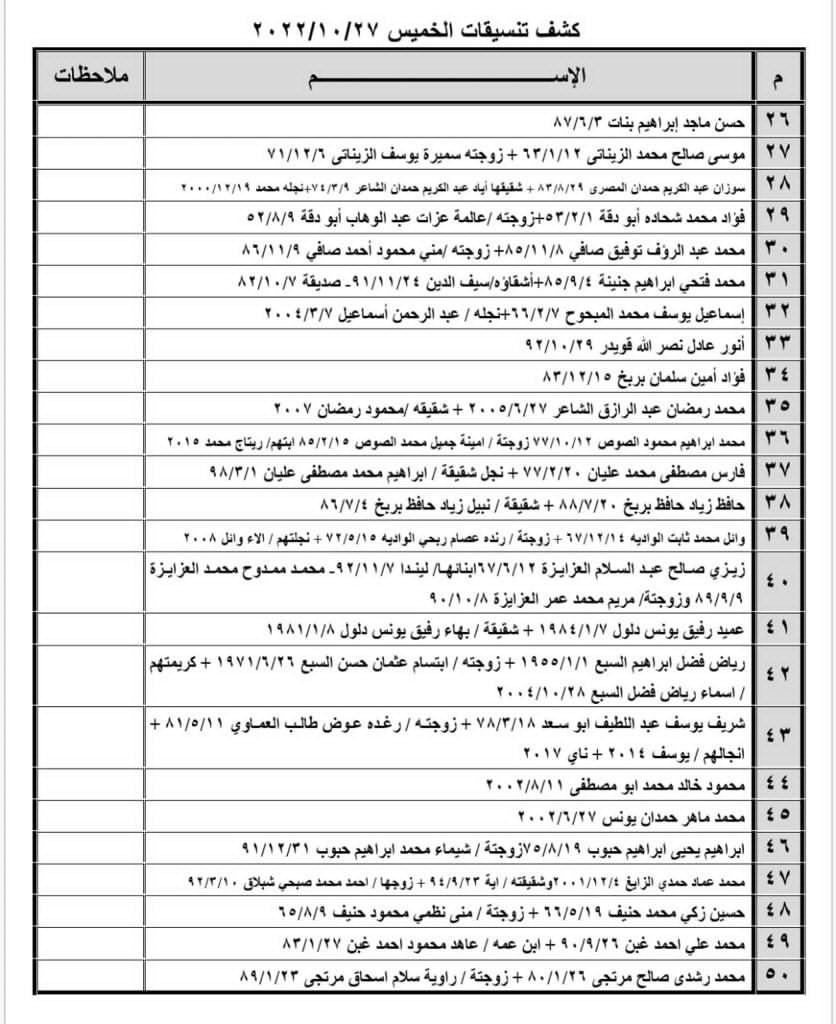 كشف تنسيقات الخميس ٢٠٢٢/١٠/٢٧
م الإســـــــــم ملاحظات
٢٦ حسن ماجد إبراهيم بنات ٨٧/٦/٣
٢٧ موسى صالح محمد الزيناتى ٦٣/١/١٢ + زوجته سميرة يوسف الزيناتى ٧١/١٢/٦
٢٨ سوزان عبد الكريم حمدان المصرى ٨٣/٨/٢٩ + شقيقها أياد عبد الكريم حمدان الشاعر ٧٤/٣/٩+نجله محمد ٢٠٠٠/١٢/١٩
٢٩ فؤاد محمد شحاده أبو دقة ٥٣/٢/١+زوجته /عالمة عزات عبد الوهاب أبو دقة ٥٢/٨/٩
٣٠ محمد عبد الرؤف توفيق صافي ٨٥/١١/٨+ زوجته /مني محمود أحمد صافي ٨٦/١١/٩
٣١ محمد فتحي ابراهيم جنينة ٨٥/٩/٤+أشقاؤه/سيف الدين ٩١/١١/٢٤- صديقة ٨٢/١٠/٧
٣٢ إسماعيل يوسف محمد المبحوح ٦٦/٢/٧+نجله / عبد الرحمن أسماعيل ٢٠٠٤/٣/٧
٣٣ أنور عادل نصر الله قويدر ٩٢/١٠/٢٩
٣٤ فؤاد أمين سلمان بربخ ٨٣/١٢/١٥
٣٥ محمد رمضان عبد الرازق الشاعر ٢٠٠٥/٦/٢٧ + شقيقه /محمود رمضان ٢٠٠٧
٣٦ محمد ابراهيم محمود الصوص ٧٧/١٠/١٢ زوجتة / امينة جميل محمد الصوص ٨٥/٢/١٥ ابتهم/ ريتاج محمد ٢٠١٥
٣٧ فارس مصطفى محمد عليان ٧٧/٢/٢٠ + نجل شقيقة / ابراهيم محمد مصطفى عليان ٩٨/٣/١
٣٨ حافظ زياد حافظ بربخ ٨٨/٧/٢٠ + شقيقة / نبيل زياد حافظ بربخ ٨٦/٧/٤
٣٩ وائل محمد ثابت الواديه ٦٧/١٢/١٤ + زوجتة / رنده عصام ربحي الواديه ٧٢/٥/١٥ + نجلتهم / الاء وائل ٢٠٠٨
٤٠ زيزي صالح عبد السلام العزايزة ٦٧/٦/١٢ابنائها/ ليندا ٩٢/١١/٧- محمد ممدوح محمد العزايزة
٨٩/٩/٩ وزوجتة/ مريم محمد عمر العزايزة ٩٠/١٠/٨
٤١ عميد رفيق يونس دلول ١٩٨٤/١/٧ + شقيقة / بهاء رفيق يونس دلول ١٩٨١/١/٨
٤٢ رياض فضل ابراهيم السبع ١٩٥٥/١/١ + زوجته / ابتسام عثمان حسن السبع ١٩٧١/٦/٢٦ + كريمتهم
/ اسماء رياض فضل السبع ٢٠٠٤/١٠/٢٨
٤٣ شريف يوسف عبد اللطيف ابو سعد ٧٨/٣/١٨ + زوجته / رغده عوض طالب العماوي ٨١/٥/١١ +
انجالهم / يوسف ٢٠١٤ + ناي ٢٠١٧
٤٤ محمود خالد محمد ابو مصطفى ٢٠٠٢/٨/١١
٤٥ محمد ماهر حمدان يونس ٢٠٠٢/٦/٢٧
٤٦ ابراهيم يحيى ابراهيم حبوب ٧٥/٨/١٩زوجتة / شيماء محمد ابراهيم حبوب ٩١/١٢/٣١
٤٧ محمد عماد حمدي الزايغ ٢٠٠١/١٢/٤وشقيقته / اية ٩٤/٩/٢٣ + زوجها / احمد محمد صبحي شبلاق ٩٢/٣/١٠
٤٨ حسين زكي محمد حنيف ٦٦/٥/١٩ + زوجتة / منى نظمي محمود حنيف ٦٥/٨/٩
٤٩ محمد علي احمد غبن ٩٠/٩/٢٦ + ابن عمه / عاهد محمود احمد غبن ٨٣/١/٢٧
٥٠ محمد رشدى صالح مرتجى ٨٠/١/٢٦ + زوجتة / راوية سلام اسحاق مرتجى ٨٩/١/٢٣